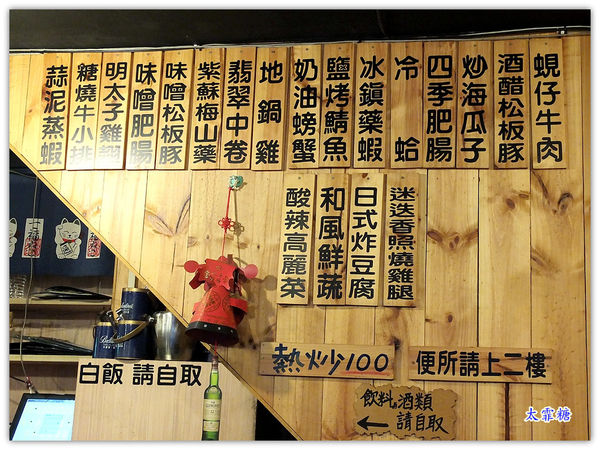 蜆仔牛肉
酒醋松板豚
炒海瓜子
四季肥腸
冷蛤
冰鎮藥蝦
鹽烤鯖魚
奶油螃蟹
地鍋雞
翡翠中卷
紫蘇梅山藥
味噌松板豚
味噌肥腸
明太子雞翅
糖燒牛小排
蒜泥蒸蝦
迷迭香照燒雞腿
日式炸豆腐
和風鮮蔬
酸辣高麗菜
熱炒100
便所請上二樓
白飯 請自取
飲料&酒類
← 請自取
太霏糖